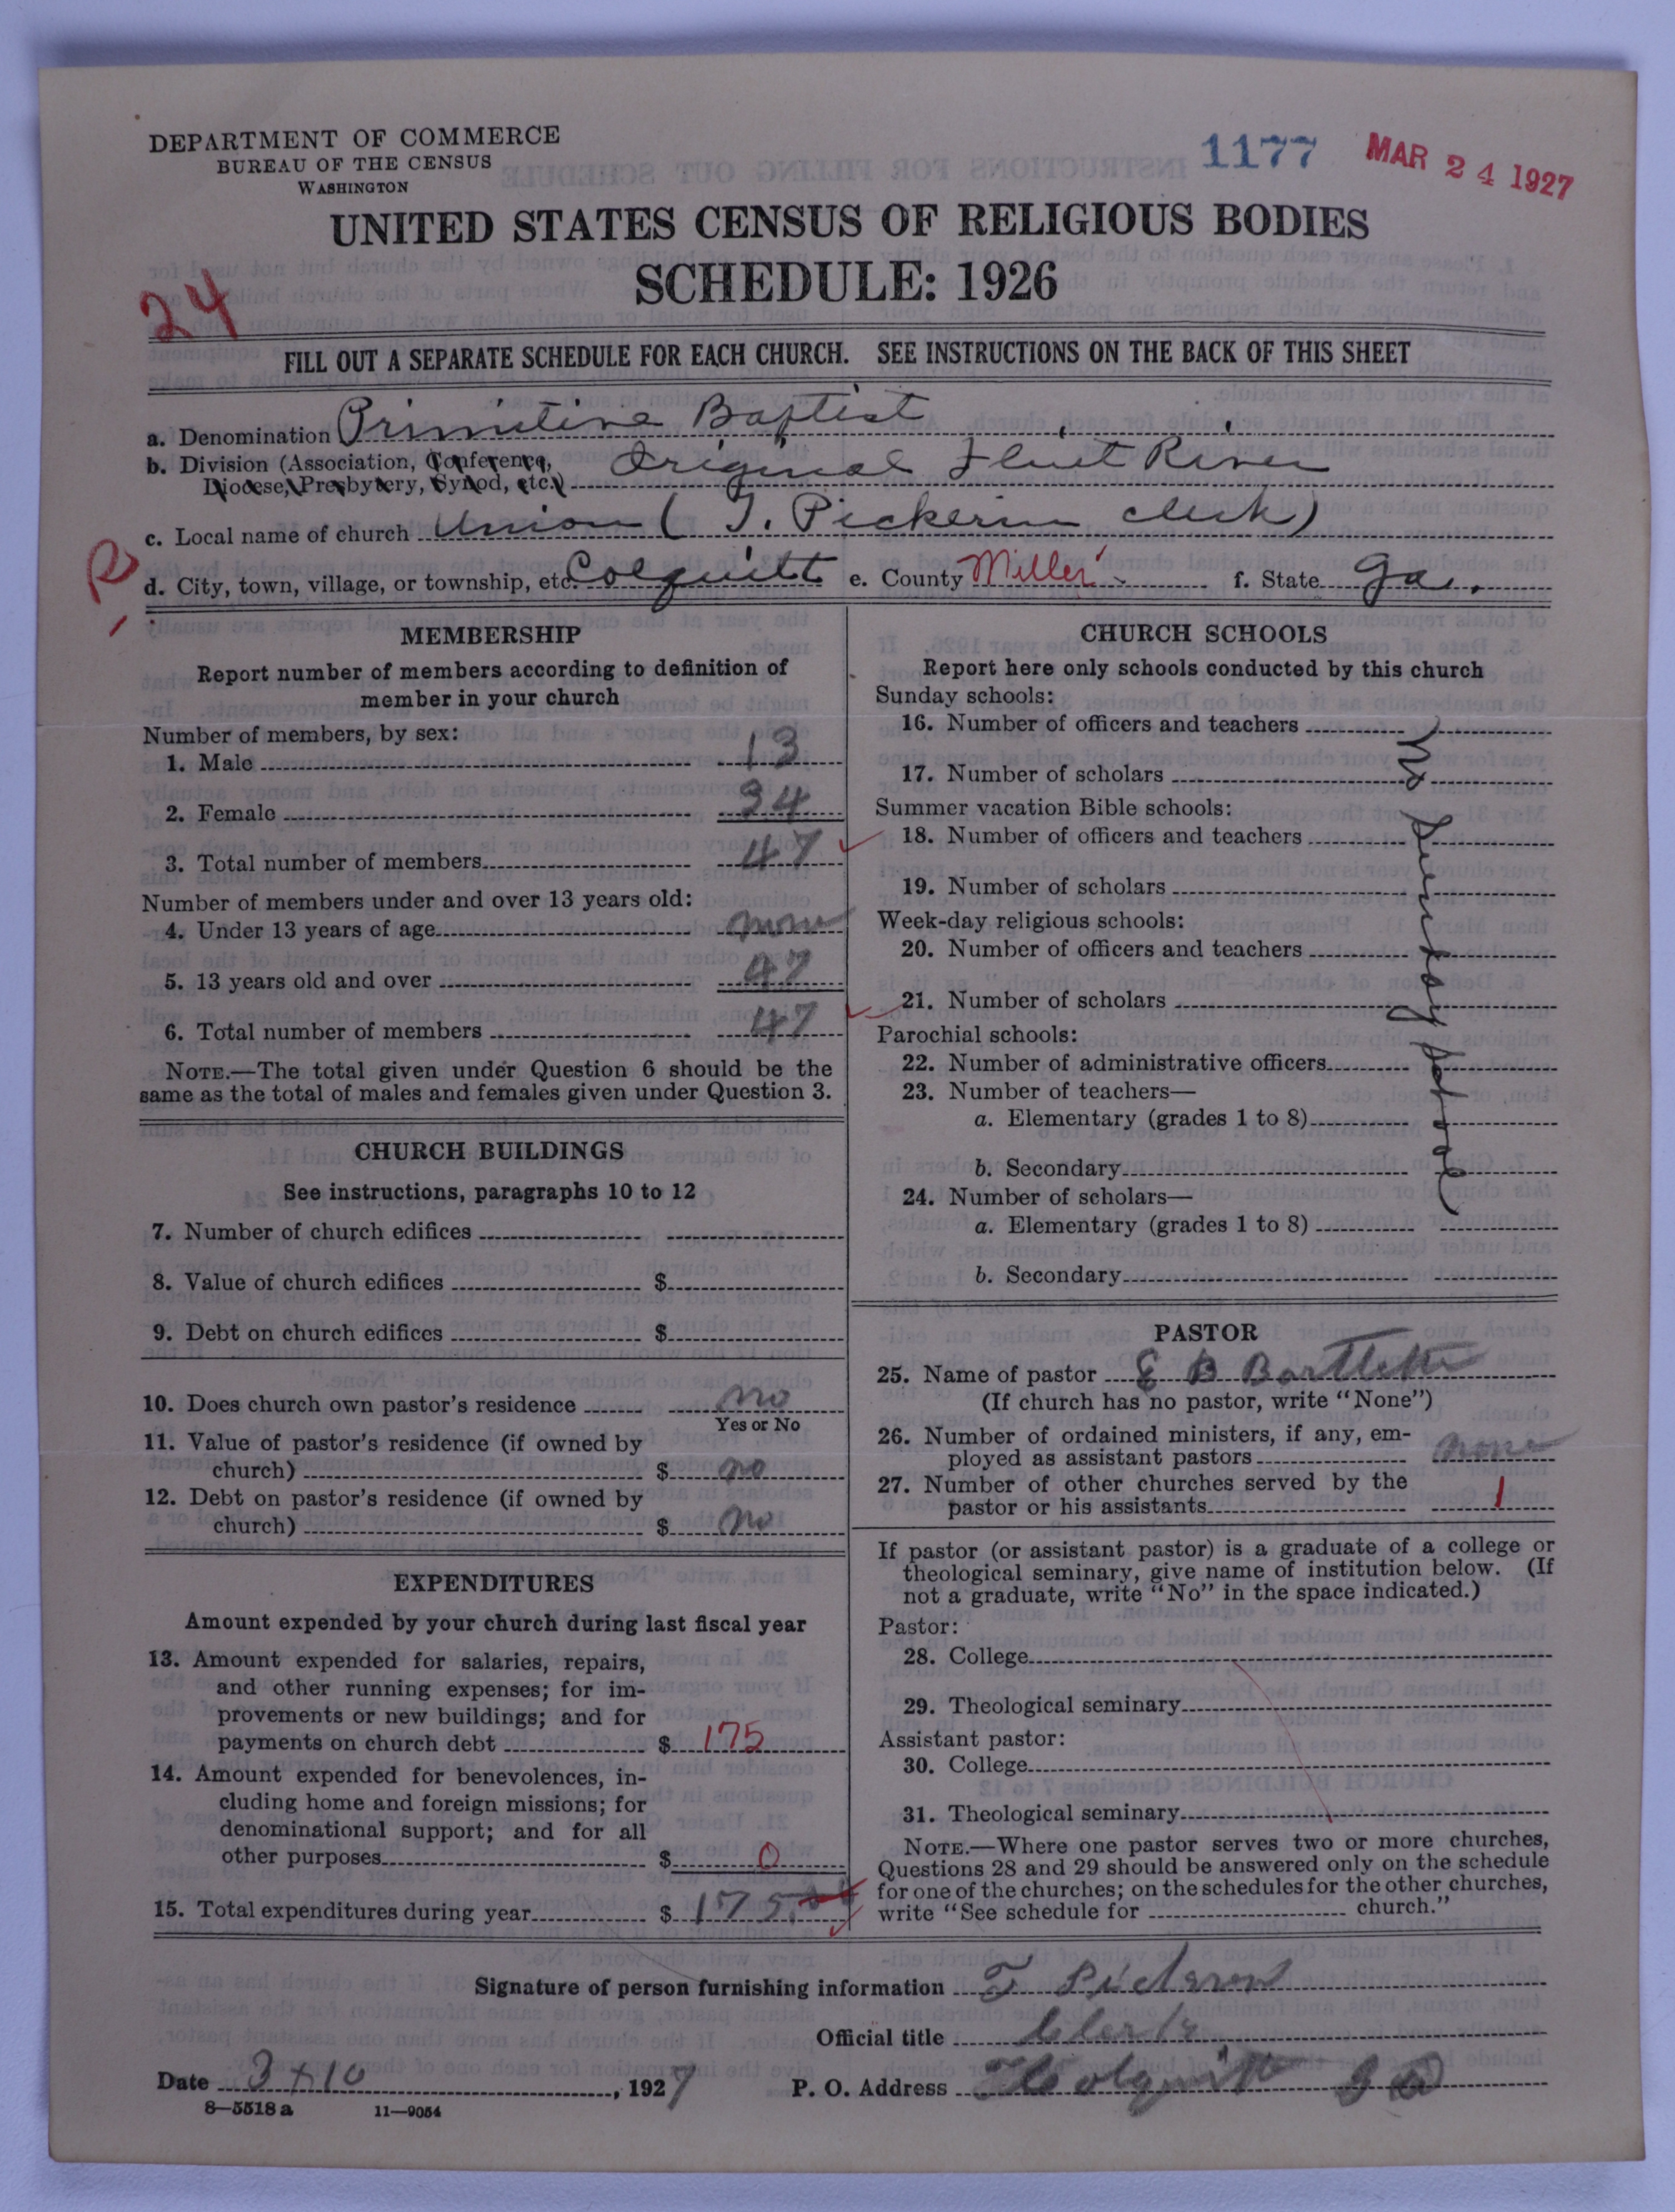 DEPARTMENT OF COMMERCE
BUREAU OF THE CENSUS
WASHINGTON
1177
MAR 24 1927
UNITED STATES CENSUS OF RELIGIOUS BODIES
SCHEDULE: 1926
24
FILL OUT A SEPARATE SCHEDULE FOR EACH CHURCH. SEE INSTRUCTIONS ON THE BACK OF THIS SHEET
a. Denomination Primitive Baptist
b. Division (Association, Conference, Diocese, Presbytery, Synod, etc.) Original Flint River
c. Local name of church Union (T. Pickerin clerk)
d. City, town, village, or township, etc. Colquitt e. County Miller f. State Ga.
MEMBERSHIP
Report number of members according to definition of
member in your church
Number of members, by sex:
1. Male 13
2. Female 34
3. Total number of members 47
Number of members under and over 13 years old:
4. Under 13 years of age none
5. 13 years old and over 47
6. Total number of members 47
NOTE.—The total given under Question 6 should be the
same as the total of males and females given under Question 3.
CHURCH BUILDINGS
See instructions, paragraphs 10 to 12
7. Number of church edifices
8. Value of church edifices $
9. Debt on church edifices $
10. Does church own pastor's residence no
Yes or No
11. Value of pastor's residence (if owned by
church) $ no
12. Debt on pastor's residence (if owned by
church) $ no
EXPENDITURES
Amount expended by your church during last fiscal year
13. Amount expended for salaries, repairs,
and other running expenses; for im-
provements or new buildings; and for
payments on church debt $ 175
14. Amount expended for benevolences, in-
cluding home and foreign missions; for
denominational support; and for all
other purposes $ 0
15. Total expenditures during year $ 175.00
CHURCH SCHOOLS
Report here only schools conducted by this church
Sunday schools:
16. Number of officers and teachers
17. Number of scholars
Summer vacation Bible schools:
18. Number of officers and teachers
19. Number of scholars
Week-day religious schools:
20. Number of officers and teachers
21. Number of scholars
Parochial schools:
22. Number of administrative officers
23. Number of teachers—
a. Elementary (grades 1 to 8)
b. Secondary
24. Number of scholars—
a. Elementary (grades 1 to 8)
b. Secondary
No Sunday School
PASTOR
25. Name of pastor E B Bartlett
(If church has no pastor, write "None")
26. Number of ordained ministers, if any, em-
ployed as assistant pastors none
27. Number of other churches served by the
pastor or his assistants 1
If pastor (or assistant pastor) is a graduate of a college or
theological seminary, give name of institution below. (If
not a graduate, write "No" in the space indicated.)
Pastor:
28. College
29. Theological seminary
Assistant pastor:
30. College
31. Theological seminary
NOTE.—Where one pastor serves two or more churches,
Questions 28 and 29 should be answered only on the schedule
for one of the churches; on the schedules for the other churches,
write "See schedule for church."
Signature of person furnishing information T
Official title Clerk
Date 3 10, 1927 P. O. Address Colquitt Ga
8—5518 a 11—9054